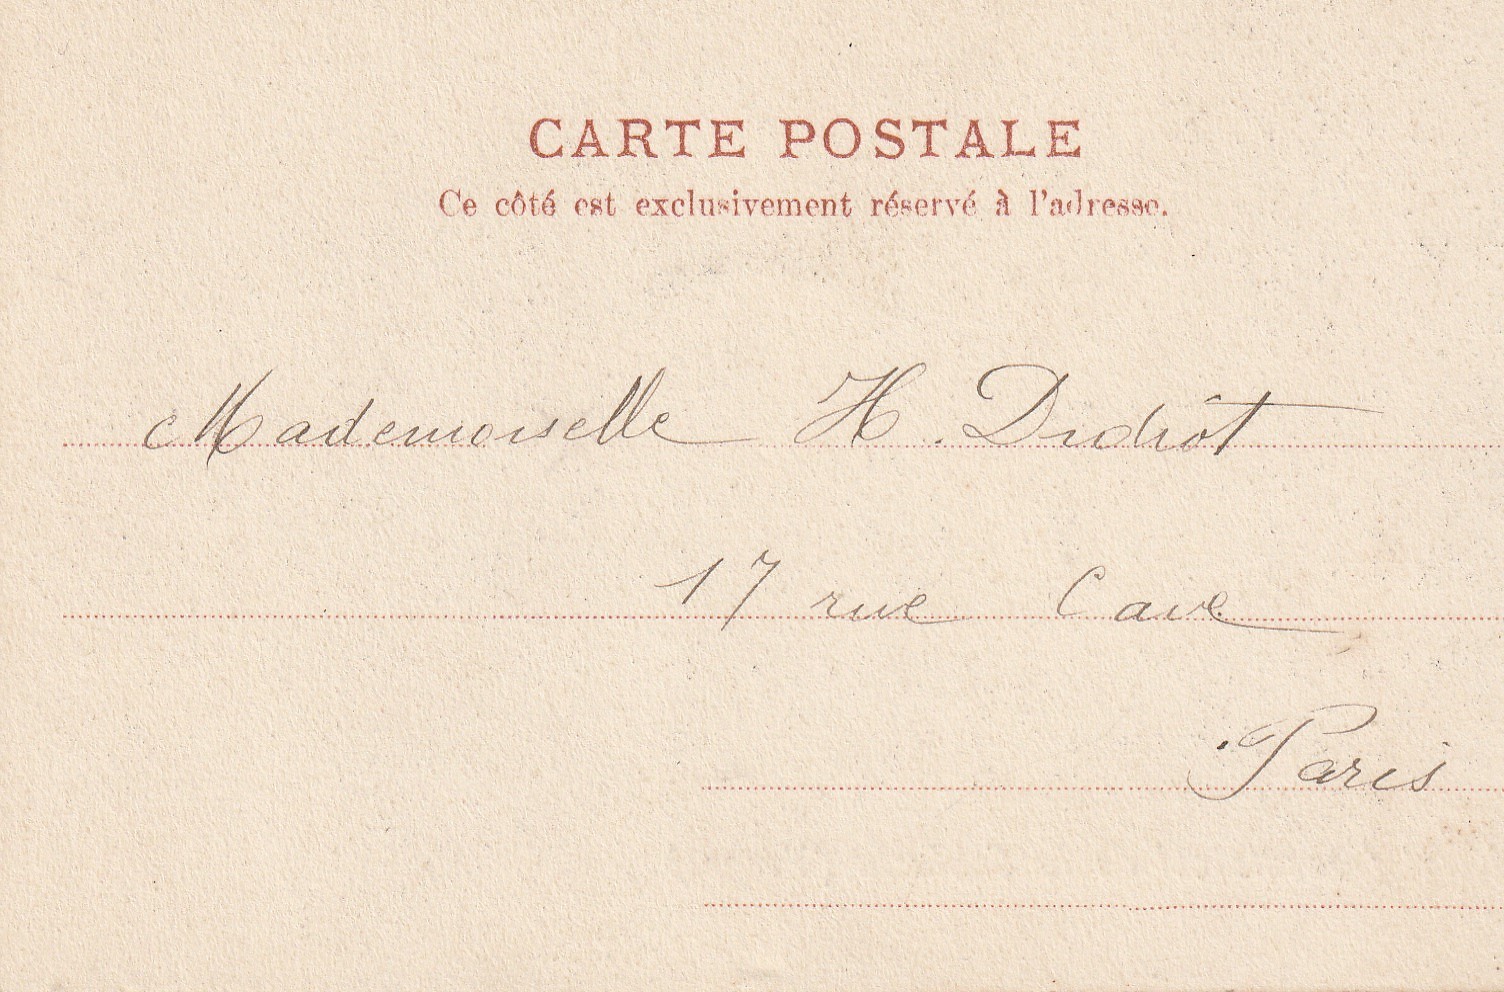 CARTE POSTALE
Ce côté est exclusivement réservé à l'adresse.
Mademoiselle H. Didiot
17 rue Cave
Paris